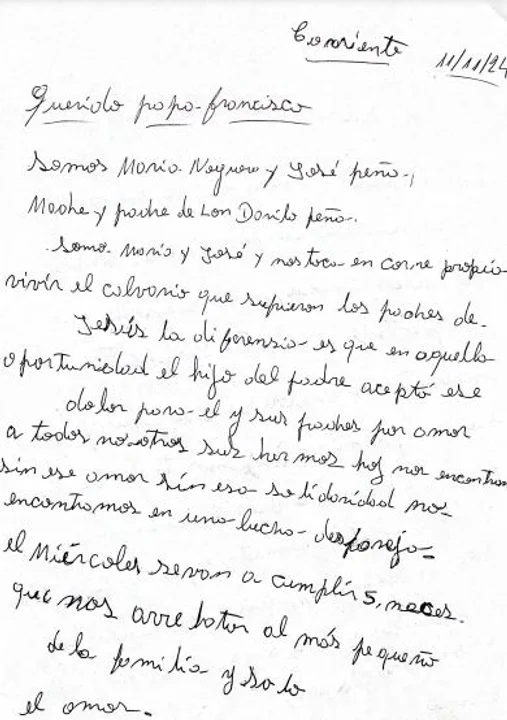 Corriente 11/11/24
Querido papa francisco
Somos Maria Noguera y José peña,
Madre y padre de Loan Danilo peña.
Somo Maria y José y nos toca en carne propia
vivir el calvario que supieron los padres de
Jesús la diferensia es que en aquella
oportunidad el hijo del padre aceptó ese
dolor para el y sus padres por amor
a todos nosotros sus hermos hoy nos encontram
sin ese amor sin esa solidaridad nos
encontramos en una lucha despareja
el Miércoles sevan a cumplir 5, meces.
que nos arrebatar al más pequeño
de la familia y solo
el amor.